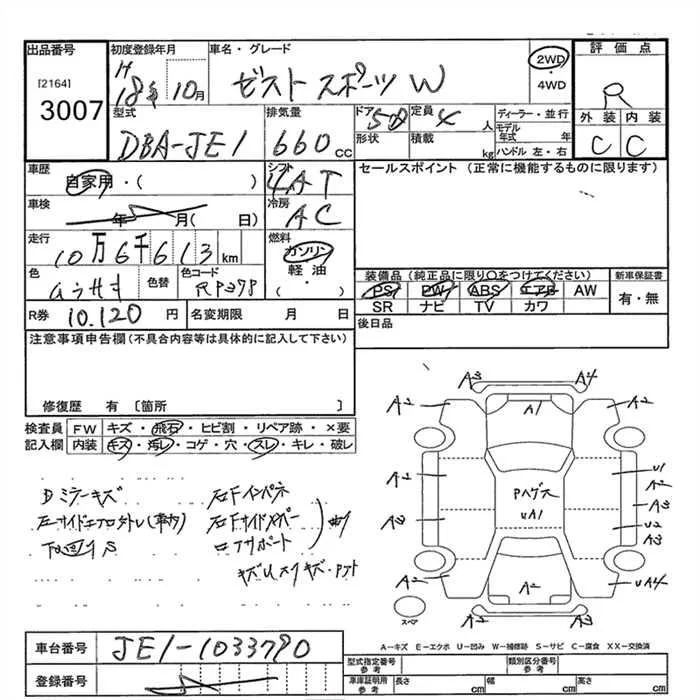 出品番号
[2164]
3007
初度登録年月
H
18年 10月
車名・グレード
ゼスト スポーツ W
2WD
・
4WD
評価点
R
外装 内装
C C
型式
DBA-JE1
排気量
660 cc
ドア
5
形状
定員
4 人
積載
kg
ディーラー・並行
モデル
年式 年
ハンドル 左・右
車歴
自家用・( )
シフト
4AT
セールスポイント (正常に機能するものに限ります)
車検
年 月( 日)
冷房
AC
走行
10万6千613 km
燃料
ガソリン
軽油
( ・ )
色
色替
色コード
装備品(純正品に限り○をつけてください)
PS PW ABS エアB AW
SR ナビ TV カワ
新車保証書
有・無
R券 10.120 円
名変期限 月 日
後日品
注意事項申告欄(不具合内容等は具体的に記入して下さい)
修復歴 有〔箇所 〕
検査員
記入欄
FW キズ・飛石・ヒビ割・リペア跡・×要
内装 キズ・汚レ・コゲ・穴・スレ・キレ・破レ
Dミラーキズ
右Fインパネ
右Fサイドメンバー
コアサポート
曲り
A3 A4
A2 A1 A2
A2 U1
Pハゲス A2
UA1
A3 A3
U2
A3
A2 A2 UA4
A2 A3
スペア
A−キズ E−エクボ U−凹み W−補修跡 S−サビ C−腐食 XX−交換済
車台番号 JE1-1033790
登録番号
型式指定番号
参考
類別区分番号
参考
車庫証明用
参考
長さ cm 幅 cm 高さ cm